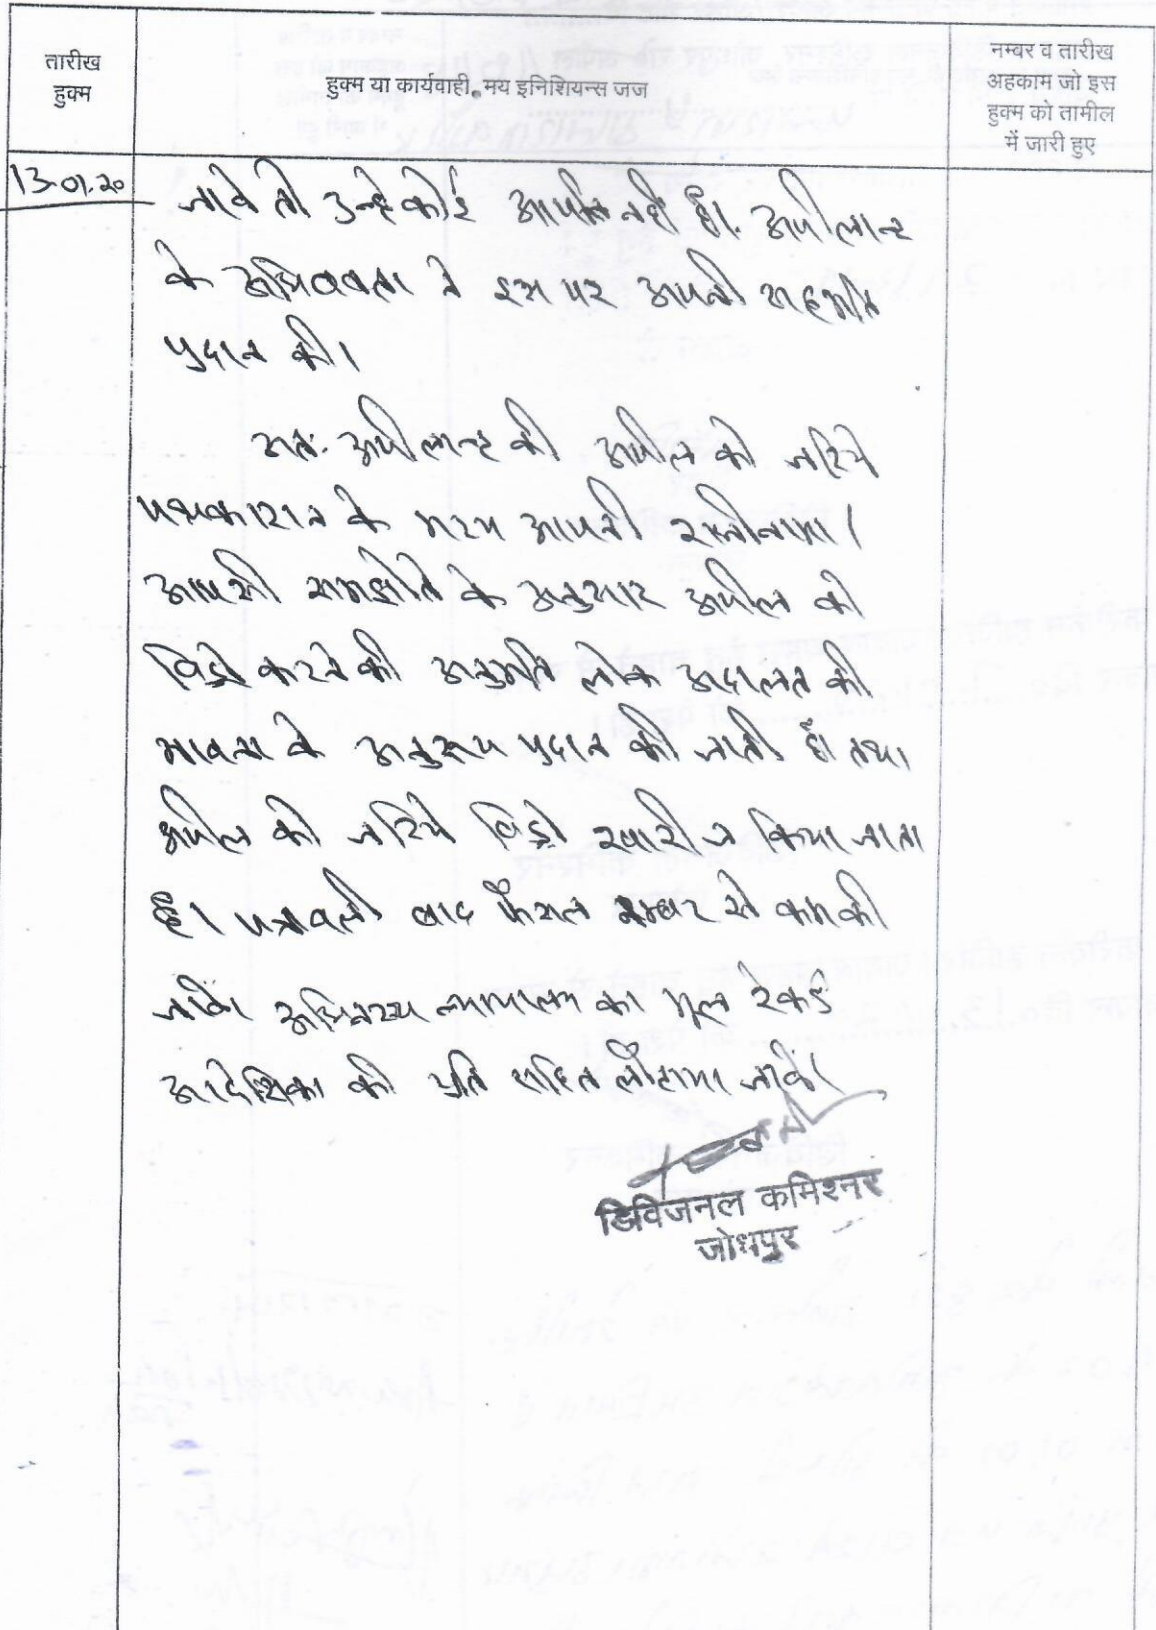 तारीख
हुक्म
हुक्म या कार्यवाही मय इनिशियन्स जज
नम्बर व तारीख
अहकाम जो इस
हुक्म को तामील
में जारी हुए
13-01-20
जावे तो उन्हे कोई आपत्ति नहीं है। अपीलान्ट
के अभिवक्ता ने इस पर अपनी सहमति
प्रदान की।
अतः अपीलान्ट की अपील को जरिये
पक्षकारान के मध्य आपसी राजीनामा/
आपसी समझौते के अनुसार अपील को
विड्रो करने की अनुमति लोक अदालत की
भावना के अनुरूप प्रदान की जाती है तथा
अपील को जरिये विड्रो खारीज किया जाता
है। पत्रावली बाद फैसल नम्बर से कम की
जावे। अधिनस्थ न्यायालय का मूल रेकर्ड
आदेशिका की प्रति सहित लौटाया जावे।
डिविजनल कमिश्नर
जोधपुर